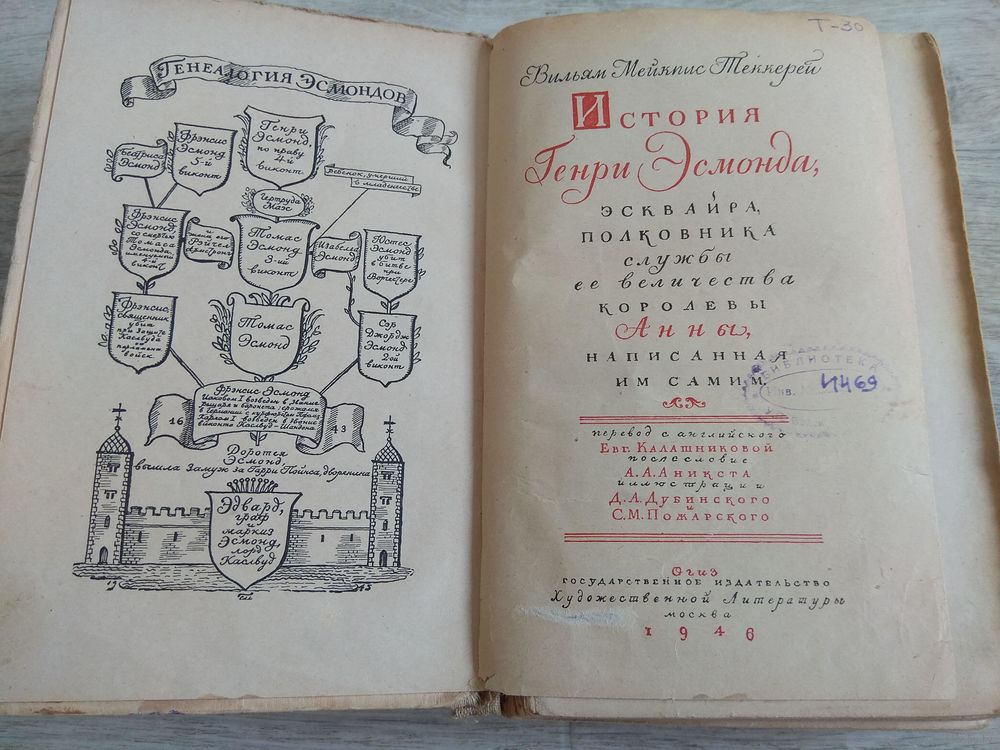 Генеалогия Эсмондов
Беатриса
Эсмонд
Фрэнсис
Эсмонд
5-й
виконт
Генри
Эсмонд,
по праву
4-й
виконт
ребенок, умерший
в младенчестве
Гертруда
Маэс
Фрэнсис
Эсмонд
со смертью
Томаса
Эсмонда,
именуемый
4-й
виконт
и
жена его
Рэйчел
Армстронг
Томас
Эсмонд
3-ий
виконт
Изабелла
Эсмонд
Юстес
Эсмонд
убит
в битве
при
Ворчестере
Фрэнсис,
священник
убит
при защите
Каслвуда
от
парламент.
войск
Томас
Эсмонд
Сэр
Джордж
Эсмонд
2ой
виконт
Фрэнсис Эсмонд
Иаковом I возведен в звание
рыцаря и баронета
в Германии с курфюрстом
Карлом I возведен в звание
виконта Каслвуд-Шандона
16 43
Доротея
Эсмонд,
вышла замуж за Гарри Пойнса, дворянина
Эдвард,
граф
и
маркиз
Эсмонд,
лорд
Каслвуд
19 45
Т-30
Вильям Мейкпис Теккерей
История
Генри Эсмонда,
эсквайра,
полковника
службы
ее величества
королевы
Анны,
написанная
им самим.
БИБЛИОТЕКА
Инв. 11469
перевод с английского
Евг. Калашниковой
послесловие
А. А. Аникста
иллюстрации
Д. А. Дубинского
и
С. М. Пожарского
Огиз
государственное издательство
Художественной Литературы
москва
1946